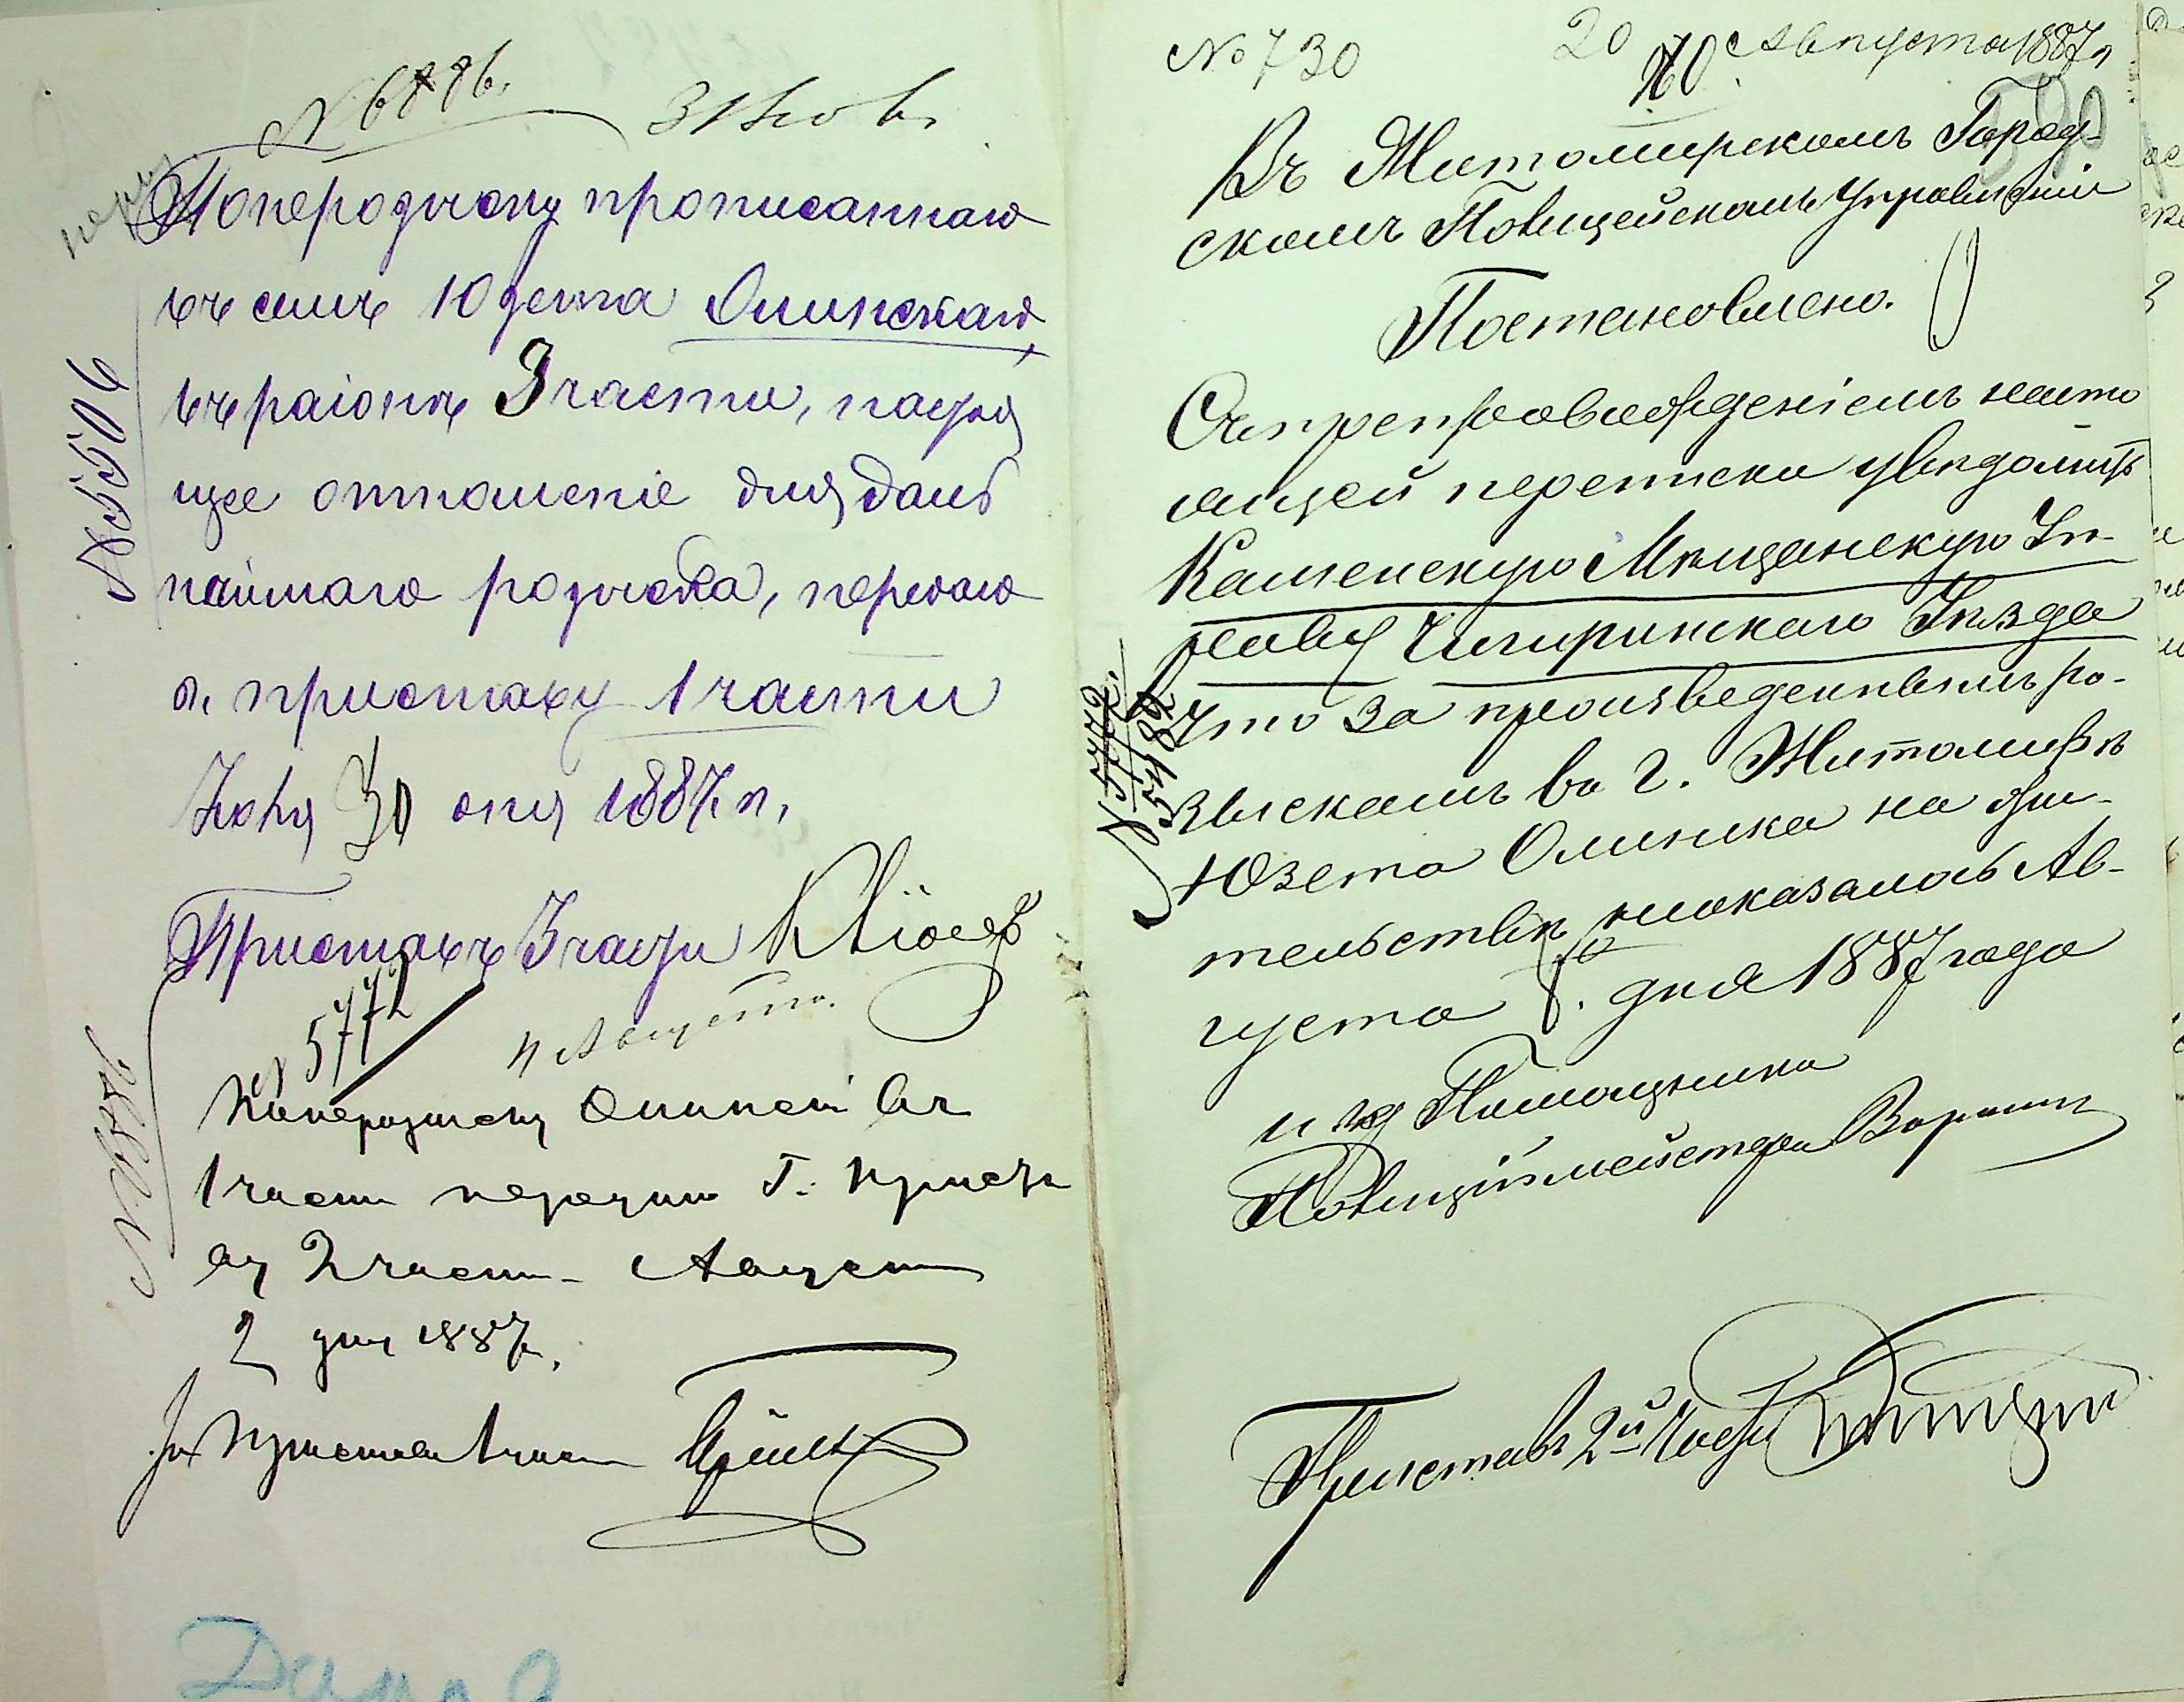 № 6886.
31 Июля
Непорозыску прописаннаго
въ семъ Юзефа Олинскаго
въ раіоне 3 части, настоя
щее отношеніе для даль
нейшаго розыска, передаю
г. приставу 1 части
Іюля 30 дня 1887 г.
Приставъ 3 части
№ 5506
№ 5772
4 Августа.
Непорозыску Олинска въ
1 части передаю Г. Приста
ву 2 части Августа
2 дня 1887 г.
За Пристава 1 части
№ 6886
№ 730
20 Августа 1887 г.
10
Въ Житомирскомъ Город-
скомъ Полицейскомъ Управленіи
Постановлено.
Съ препровожденіемъ насто
ящей переписки уведомить
Каменскую Мещанскую Уп-
раву Чигиринскаго Уезда
что за произведеннымъ ро-
зыскомъ въ г. Житомире
Юзефа Олинска на жи-
тельстве не оказалось Ав-
густа 8. дня 1887 года
и. д. Помощника
Полиціймейстера
№ 5772.
5482
Приставъ 2й Части